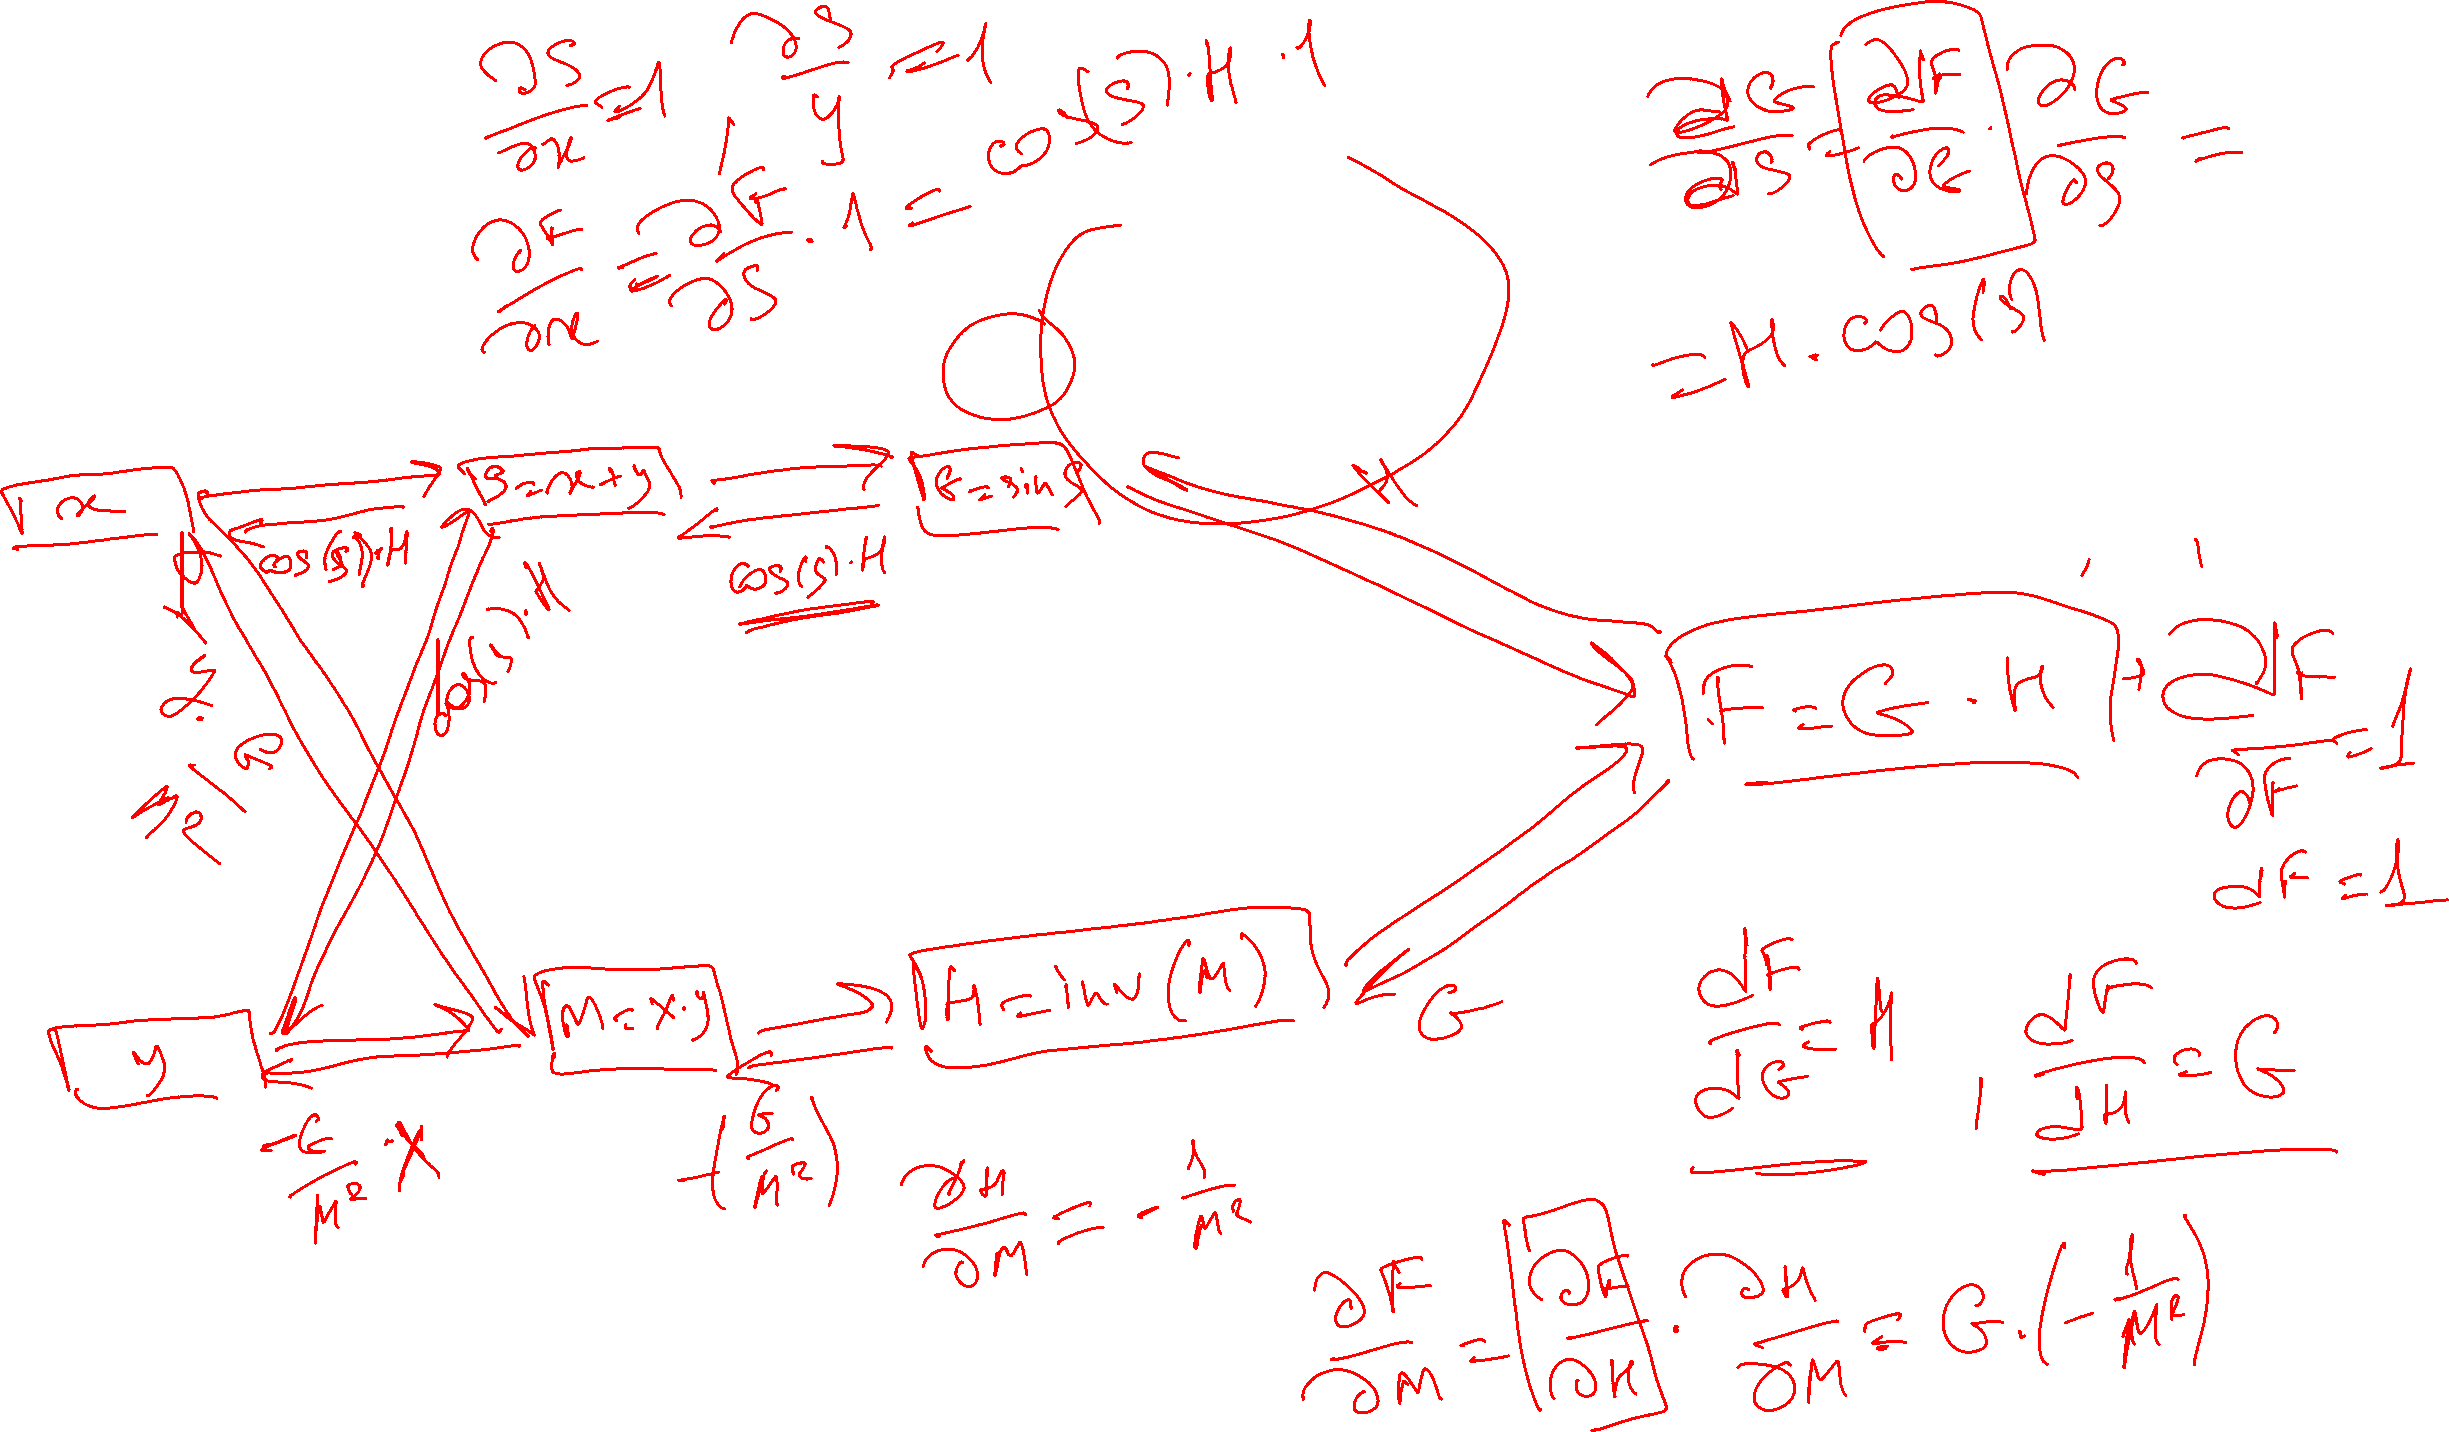 ∂S/∂x = 1 , ∂S/y = 1
∂F/∂x = ∂F/∂S · 1 = cos(S) · H · 1
∂G/∂S = ∂F/∂G · ∂G/∂S =
= H · cos(S)
x
S = x + y
G = sin S
H
cos(S) · H
cos(S) · H
cos(S) · H
F = G · H
∂F/∂F = 1
dF = 1
y
M = x · y
H = inv(M)
G
-G/M² · X
-(G/M²)
∂H/∂M = - 1/M²
dF/dG = H , dF/dH = G
∂F/∂M = ∂F/∂H · ∂H/∂M = G · (- 1/M²)